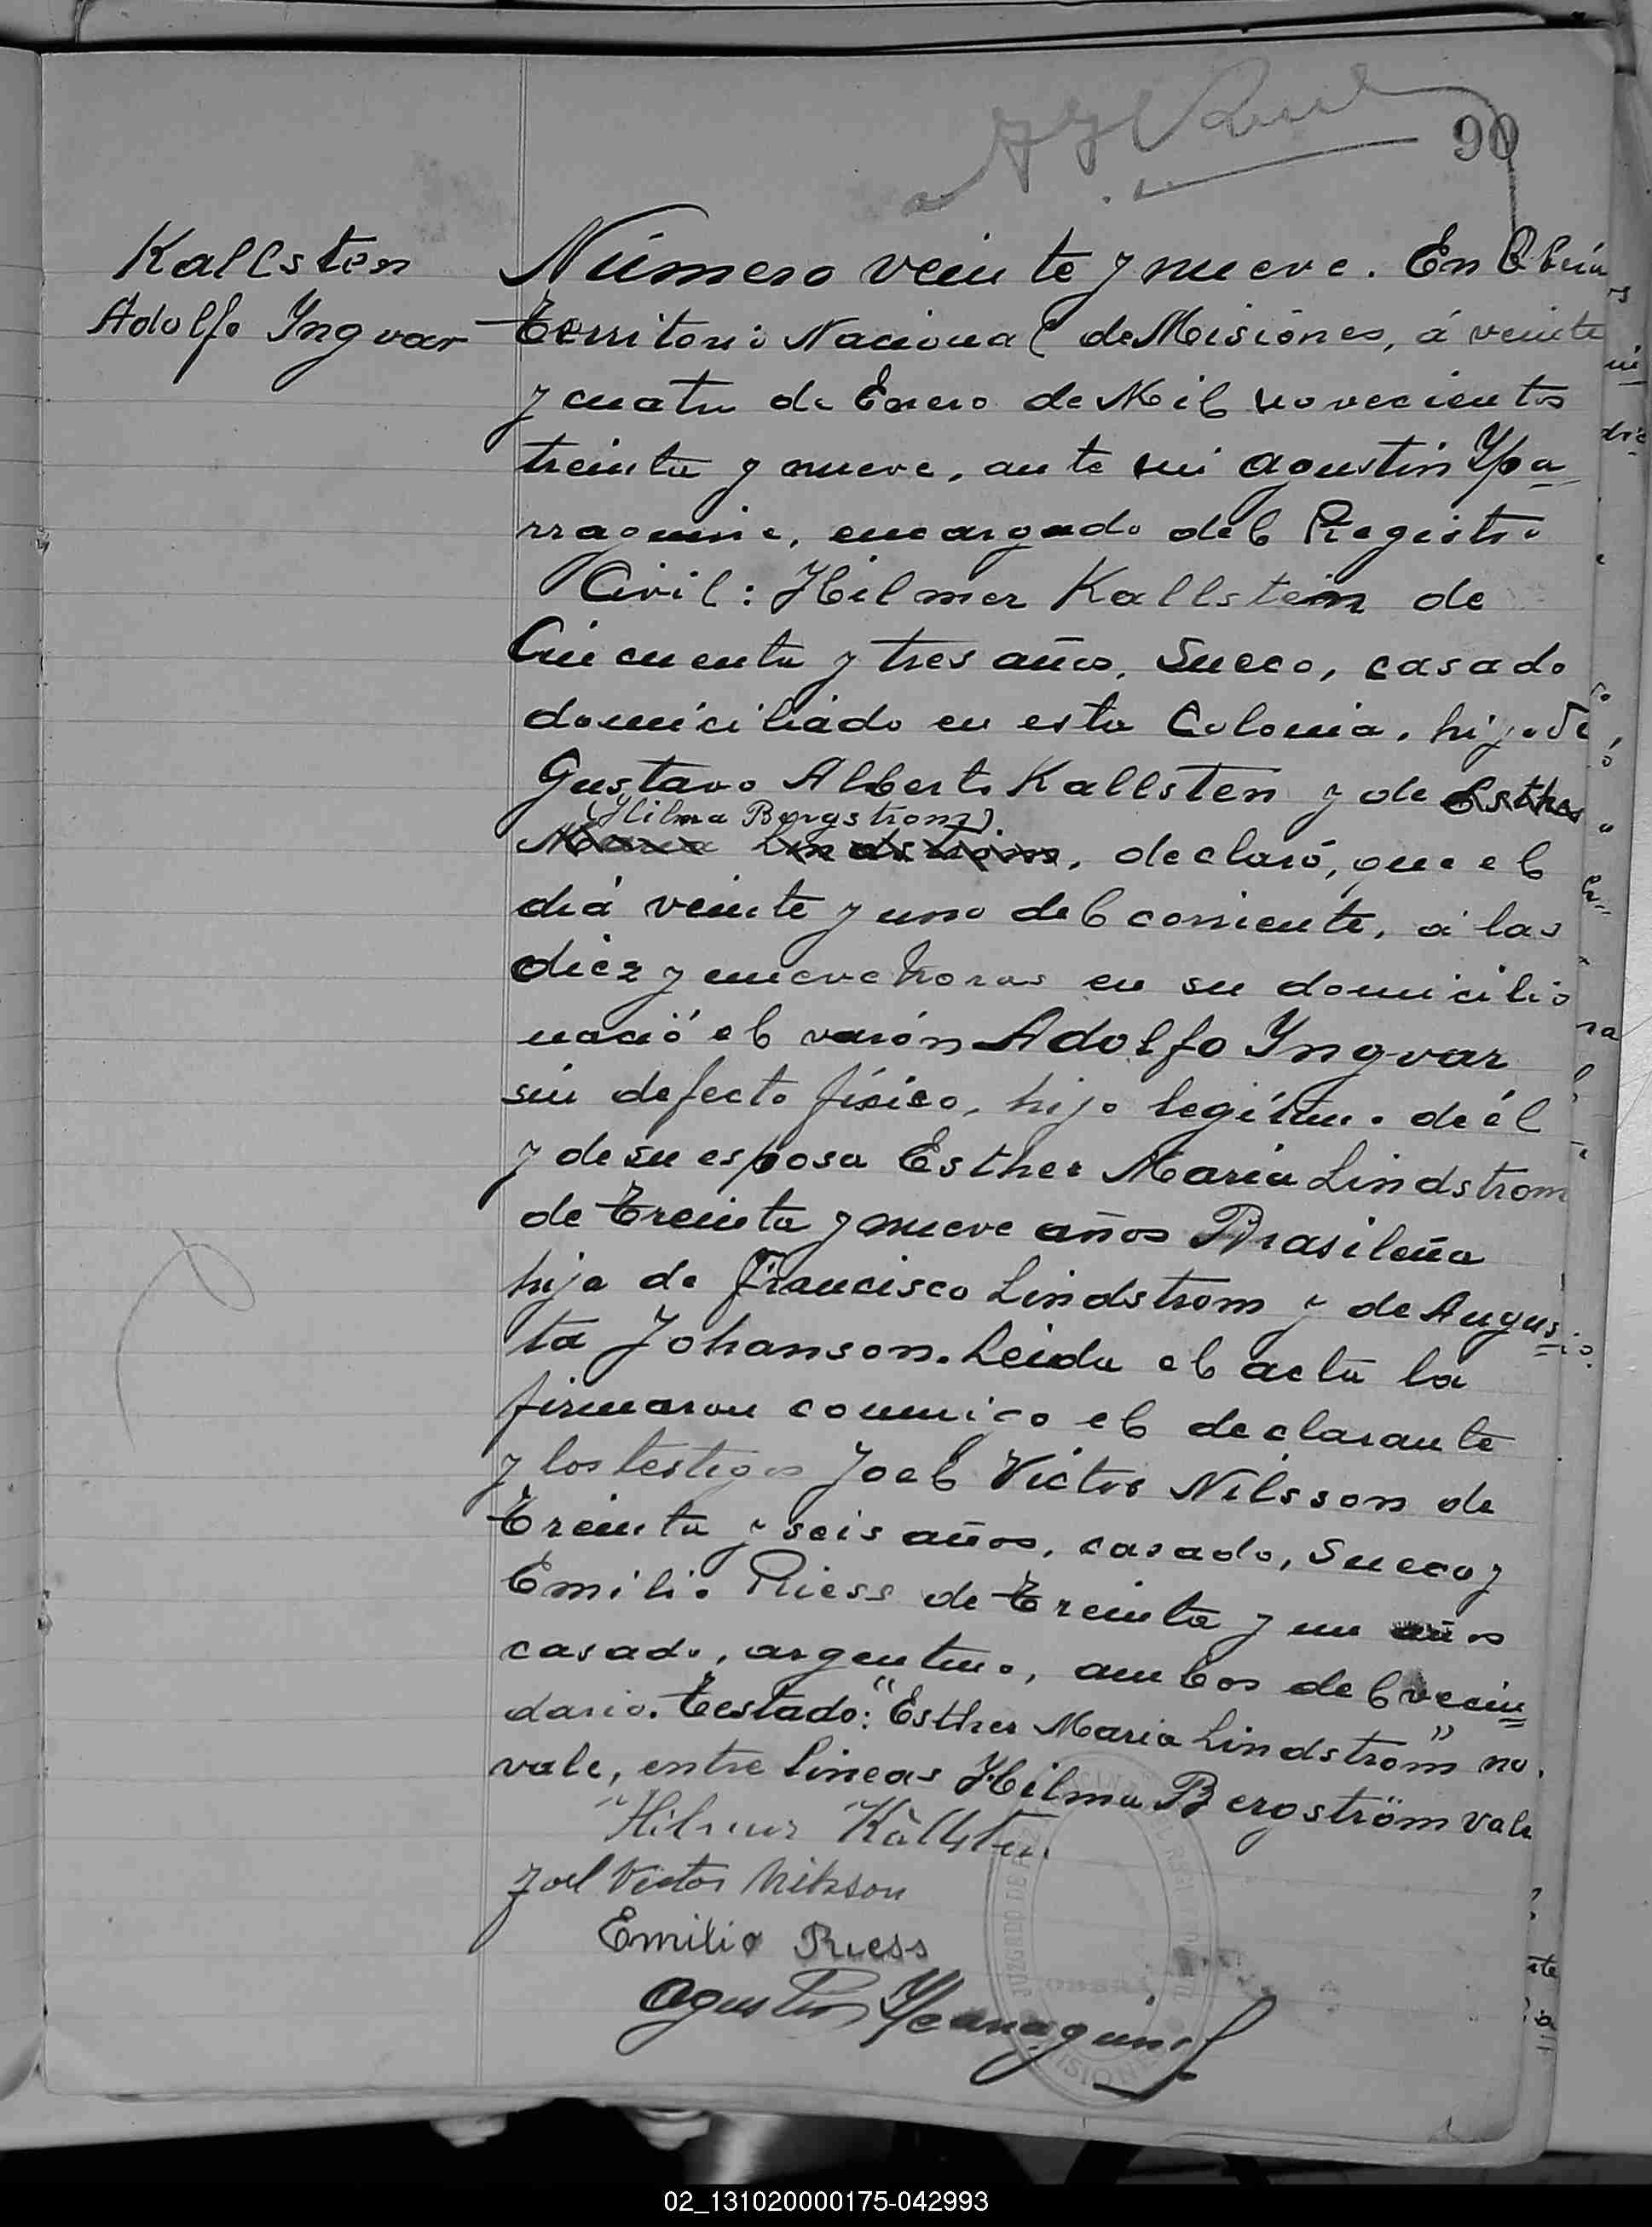 90
Kallsten
Adolfo Yngvar
Número veinte y nueve. En Oberá
Territorio Nacional de Misiónes, á veinte
y cuatro de Enero de Mil novecientos
treinta y nueve, ante mi Agustin Ypa-
rraguirre, encargado del Registro
Civil: Hilmer Kallsten de
Cincuenta y tres años, Sueco, casado
domiciliado en esta Colonia, hijo de
Gustavo Alberto Kallsten y de Esther
(Hilma Bergstrom)
Maria Lindstrom, declaró, que el
diá veinte y uno del corriente, á las
diéz y nueve horas en su domicilio
nació el varón Adolfo Yngvar
sin defecto físico, hijo legítimo de él
y de su esposa Esther Maria Lindstrom
de treinta y nueve años Brasileña
hija de Francisco Lindstrom y de Augus-
ta Johanson. Leida el acta la
firmaron conmigo el declarante
y los testigos Joel Victor Nilsson de
treinta y seis años, casado, Sueco y
Emilio Riess de treinta y un años
casado, argentino, ambos del vecin-
dario. Testado: "Esther Maria Lindstrom" no
vale, entre lineas Hilma Bergström vale
Hilmer Källsten
Joel Victor Nilsson
Emilio Riess
Agustin Yparraguirre
JUZGADO DE PAZ
MISIONES
02_131020000175-042993